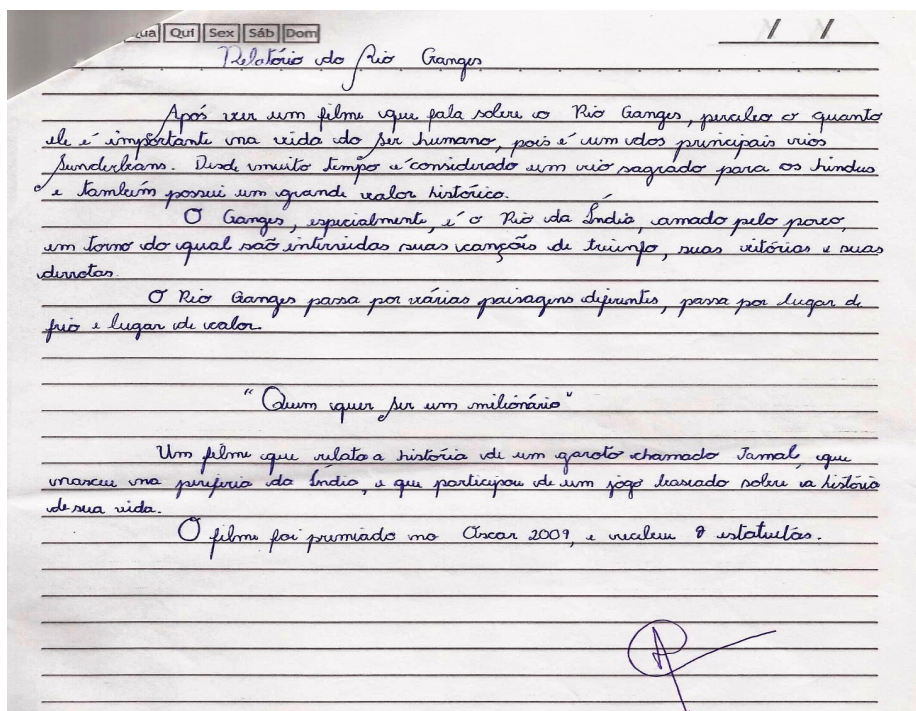 Qui Sex Sáb Dom
Relatório do Rio Ganges
Após ver um filme que fala sobre o Rio Ganges, percebeo o quanto
ele é importante na vida do ser humano, pois é um dos principais rios
Sunderbans. Desde muito tempo é considerado um rio sagrado para os hindus
e também possui um grande valor histórico.
O Ganges, especialmente, é o Rio da Índia, amado pelo povo,
em torno do qual são intrvidas suas canções de triunfo, suas vitórias e suas
derrotas.
O Rio Ganges passa por várias paisagens diferentes, passa por lugar de
frio e lugar de calor.
"Quem quer ser um milionário"
Um filme que relata a história de um garoto chamado Jamal, que
nasceu na periferia da Índia, e que participou de um jogo baseado sobre a história
de sua vida.
O filme foi premiado no Oscar 2009, e recebeu 8 estatuetas.